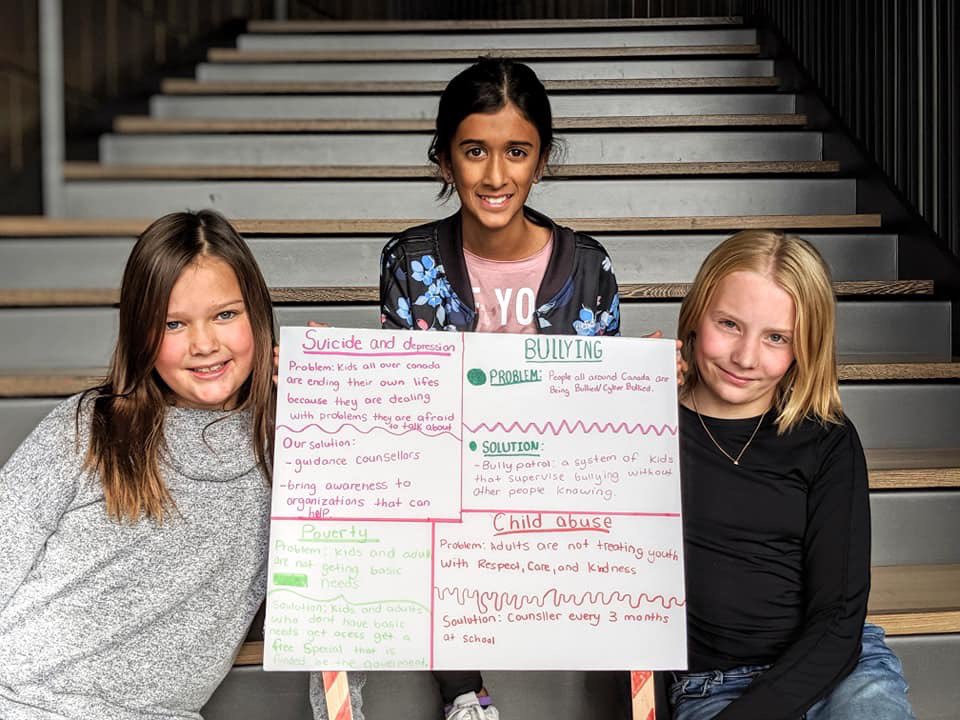 E YO
Suicide and depression
Problem: Kids all over canada
are ending their own lifes
because they are dealing
with problems they are afraid
to talk about
Our solution:
- guidance counsellors
- bring awareness to
organizations that can
help.
BULLYING
PROBLEM: People all around Canada are
Being Bullied/Cyber Bullied.
SOLUTION:
- Bully patrol: a system of kids
that supervise bullying without
other people knowing.
Poverty
Problem: Kids and adult
are not geting basic
needs
Soulution: Kids and adults
who dont have basic
needs get acess get a
free Special that is
funded be the goverment.
Child abuse
Problem: Adults are not treating youth
with Respect, Care, and Kindness
Soulution: Counsller every 3 months
at school